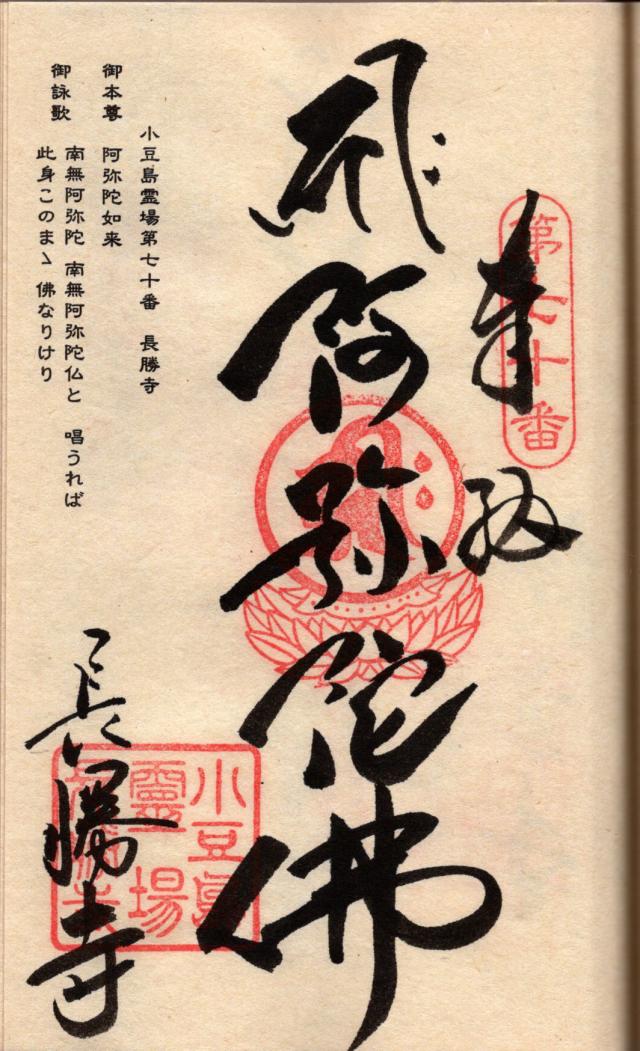 第七十番
奉納
阿弥陀佛
小豆島霊場第七十番 長勝寺
御本尊 阿弥陀如来
御詠歌 南無阿弥陀 南無阿弥陀仏と 唱うれば
此身このまゝ 佛なりけり
長勝寺
小豆島
靈場